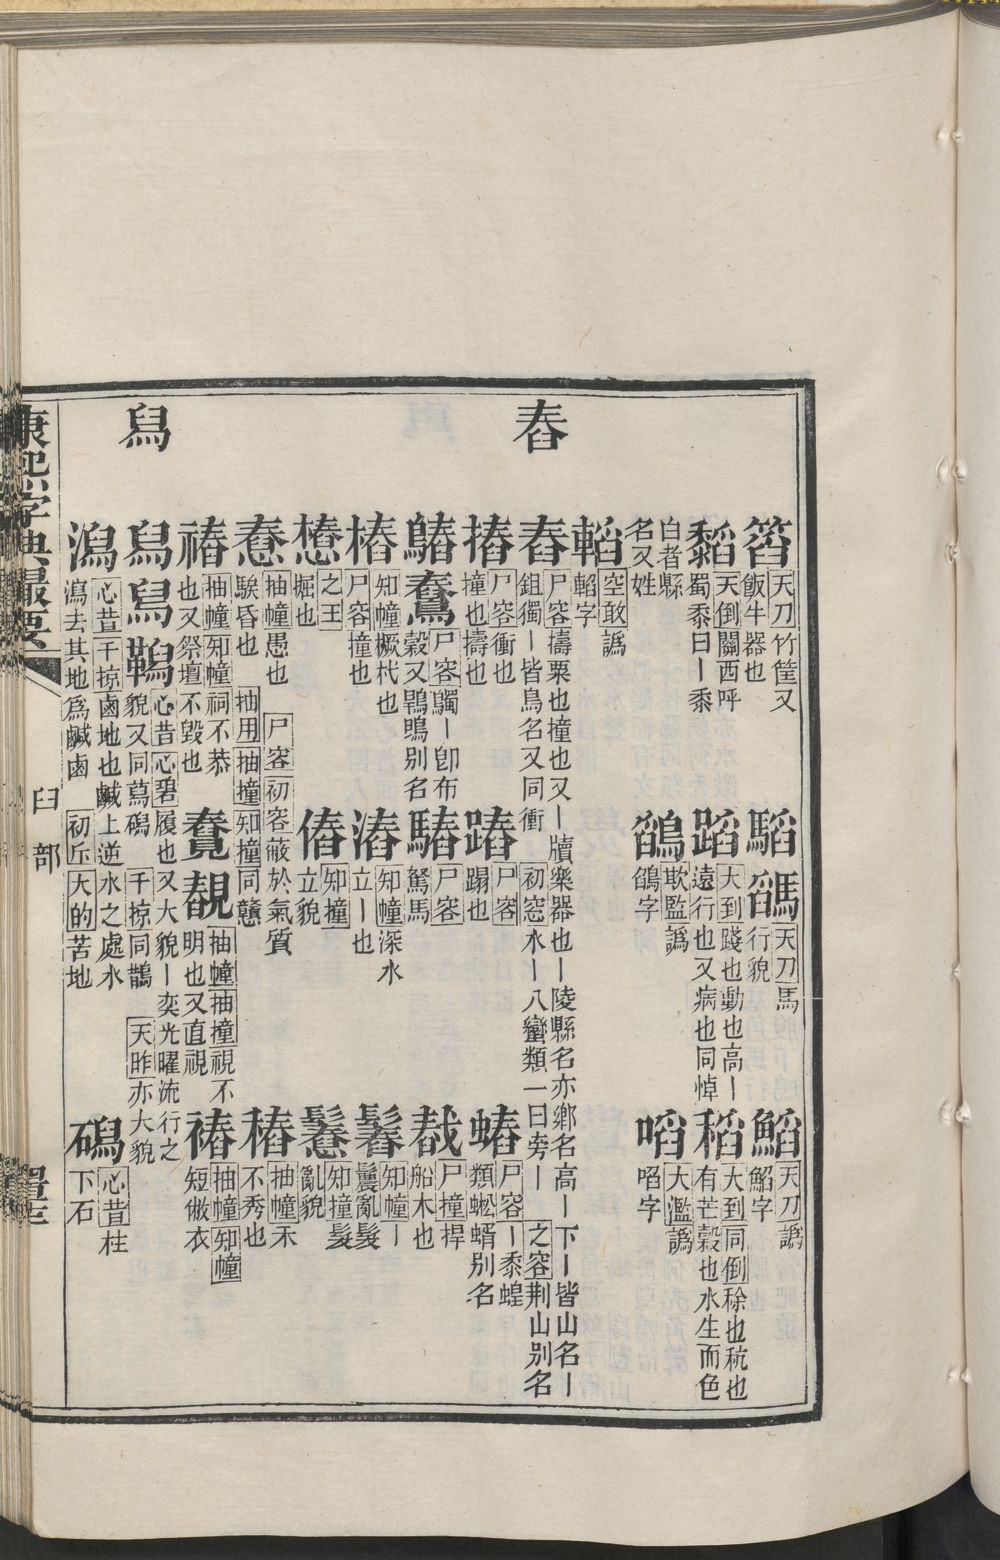 舂
舄
䈱 天刀竹筐又飯牛器也
騊 𩥅 天刀馬行貌
䱇 天刀譌䱤字
䵚 天倒關西呼蜀黍曰丨黍
蹈 大到踐也動也高丨遠行也又病也同悼
稻 大到同倒稌也秔也有芒穀也水生而色白者縣名又姓
鷂 欺監譌鵮字
㗖 大濫譌啗字
轁 空敢譌䡞字
舂 尸容擣粟也撞也又丨牘樂器也丨陵縣名亦鄉名高丨下丨皆山名丨鉏獨丨皆鳥名又同衝 初窓水丨八蠻類一曰旁丨 之容荆山別名
摏 尸容衝也撞也擣也
蹖 尸容蹋也
蝽 尸容丨黍蝗類蜙蝑別名
鰆 鶞 尸容鸀丨卽布穀又鶚鴡別名
䮵 尸容駑馬
𢧵 尸撞捍船木也
樁 知幢橛杙也 尸容撞也
湷 知幢深水立丨也
鬊 知幢丨鬞亂髮
㯬 之王掘也
偆 知撞立貌
鬊 知撞髮亂貌
惷 抽幢愚也騃昏也 抽用抽撞知撞同戇 尸容初容蔽於氣質
䅥 抽幢禾不秀也
䄝 抽幢知幢祠不恭也又祭壇不毀也
覩 抽幢抽撞視不明也又直視
𧛸 抽幢知幢短㡀衣
舄 舃 䩻 心昔心碧履也又大貌丨奕光曜流行之貌又同蕮磶 千掠同鵲 天昨亦大貌
潟 心昔千掠鹵地也鹹上逆水之處水瀉去其地爲鹹鹵 初丘大的苦地
磶 心昔柱下石
康熙字典撮要
臼部